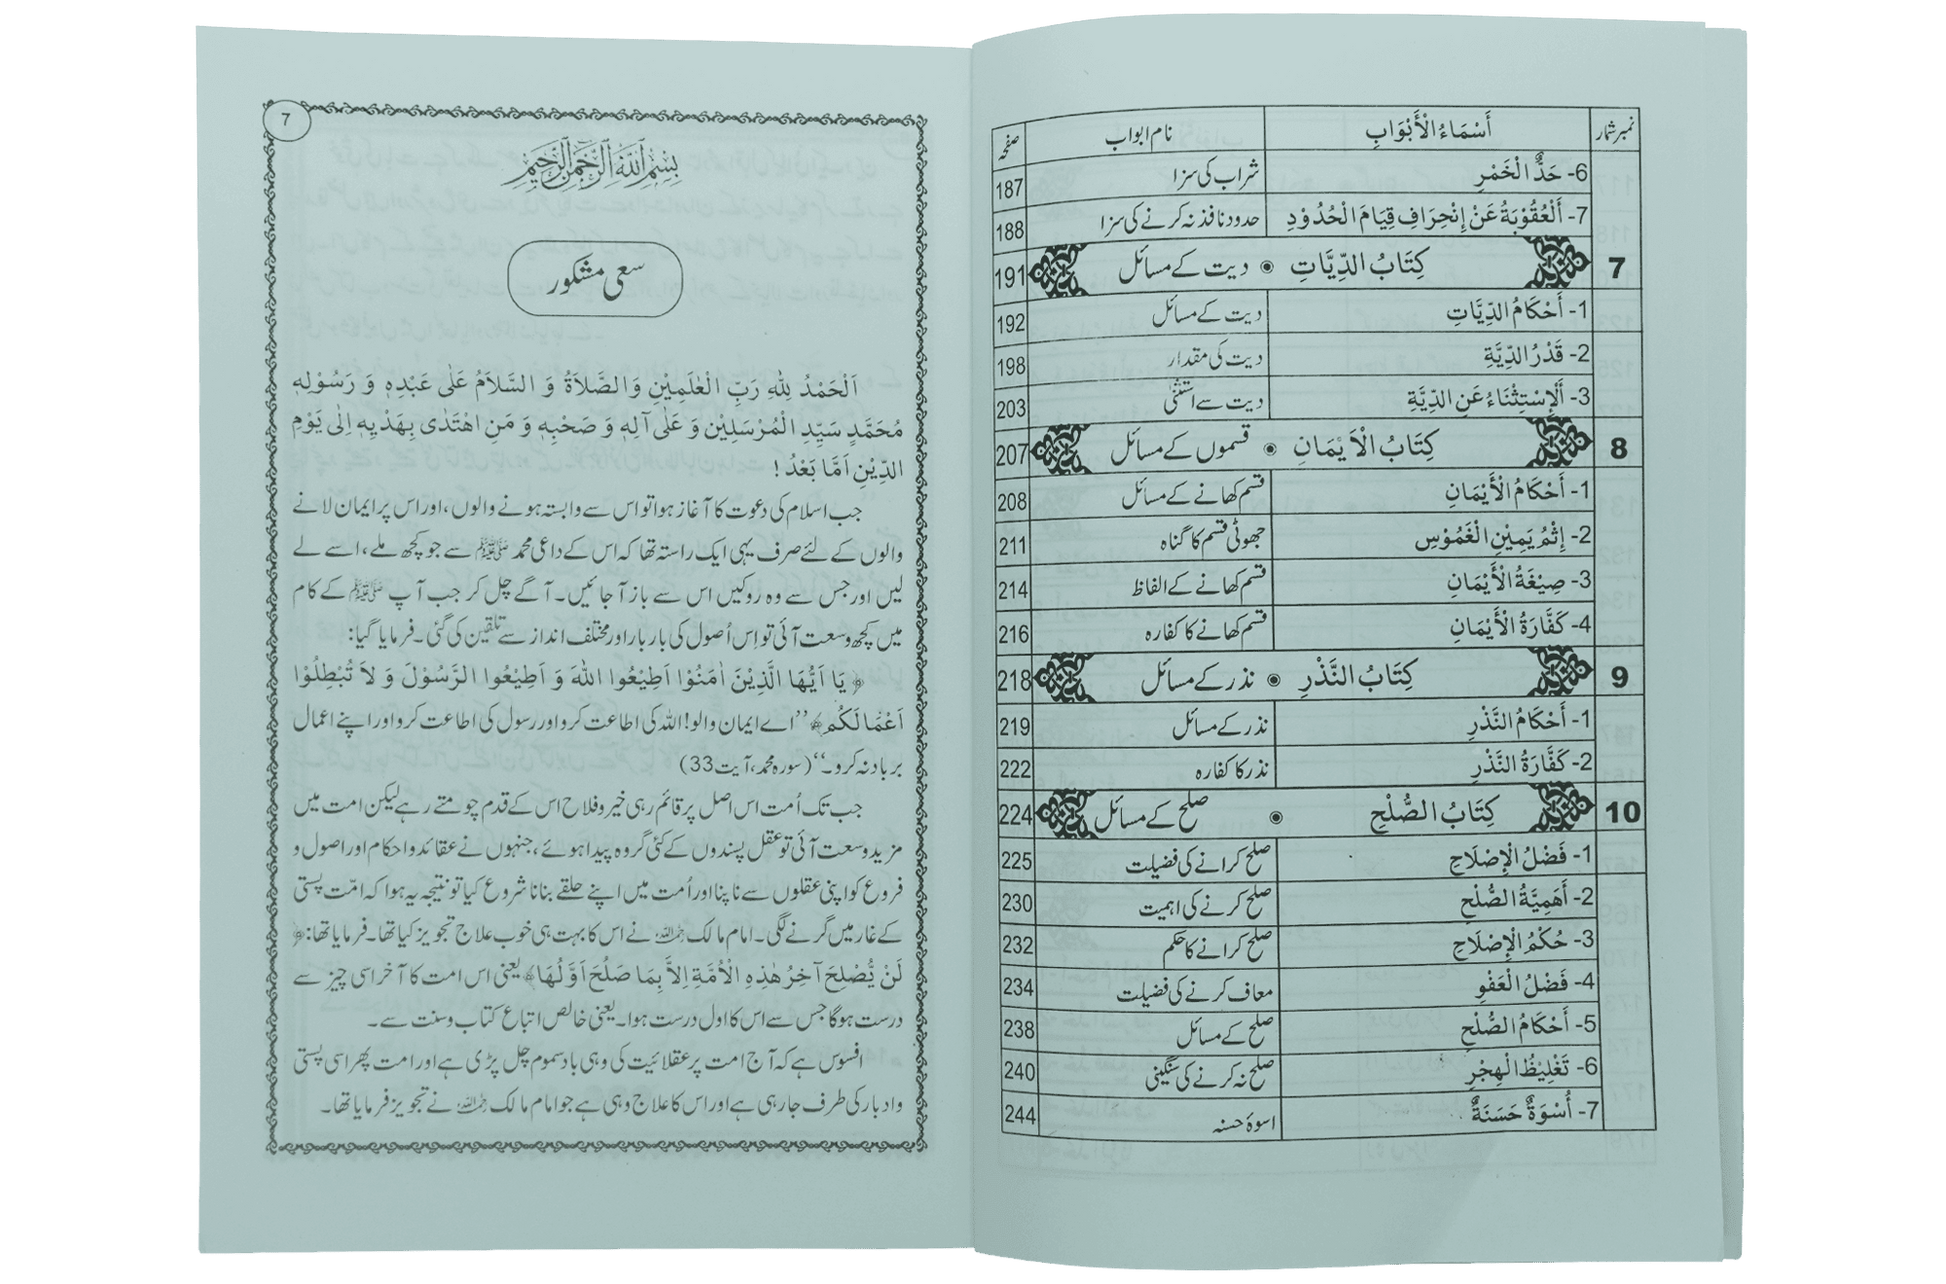 نمبر شمار أَسْمَاءُ الْأَبْوَابِ نام ابواب صفحہ
6- حَدُّ الْخَمْرِ شراب کی سزا 187
7- أَلْعُقُوْبَةُ عَنْ إِنْحِرَافِ قِيَامَ الْحُدُوْدِ حدود نافذ نہ کرنے کی سزا 188
7 كِتَابُ الدِّيَّاتِ ◉ دیت کے مسائل 191
1- أَحْكَامُ الدِّيَّاتِ دیت کے مسائل 192
2- قَدْرُ الدِّيَّةِ دیت کی مقدار 198
3- أَلْإِسْتِثْنَاءُ عَنِ الدِّيَّةِ دیت سے استثنٰی 203
8 كِتَابُ الْاَيْمَانِ ◉ قسموں کے مسائل 207
1- أَحْكَامُ الْأَيْمَانِ قسم کھانے کے مسائل 208
2- إِثْمُ يَمِيْنِ الْغَمُوْسِ جھوٹی قسم کا گناہ 211
3- صِيْغَةُ الْأَيْمَانِ قسم کھانے کے الفاظ 214
4- كَفَّارَةُ الْأَيْمَانِ قسم کھانے کا کفارہ 216
9 كِتَابُ النَّذْرِ ◉ نذر کے مسائل 218
1- أَحْكَامُ النَّذْرِ نذر کے مسائل 219
2- كَفَّارَةُ النَّذْرِ نذر کا کفارہ 222
10 كِتَابُ الصُّلْحِ ◉ صلح کے مسائل 224
1- فَضْلُ الْإِصْلَاحِ صلح کرانے کی فضیلت 225
2- أَهَمِيَّةُ الصُّلْحِ صلح کرنے کی اہمیت 230
3- حُكْمُ الْإِصْلَاحِ صلح کرانے کا حکم 232
4- فَضْلُ الْعَفْوِ معاف کرنے کی فضیلت 234
5- أَحْكَامُ الصُّلْحِ صلح کے مسائل 238
6- تَغْلِيْظُ الْهِجْرِ صلح نہ کرنے کی سنگینی 240
7- أُسْوَةٌ حَسَنَةٌ اسوۂ حسنہ 244
7
بِسْمِ اللّٰهِ الرَّحْمٰنِ الرَّحِيْمِ
سعی مشکور
اَلْحَمْدُ لِلّٰهِ رَبِّ الْعٰلَمِيْنِ وَالصَّلاَةُ وَ السَّلاَمُ عَلٰی عَبْدِهٖ وَ رَسُوْلِهٖ
مُحَمَّدٍ سَيِّدِ الْمُرْسَلِيْنَ وَ عَلٰی آلِهٖ وَ صَحْبِهٖ وَ مَنِ اهْتَدٰی بِهَدْيِهٖ اِلٰی يَوْمِ
الدِّيْنِ اَمَّا بَعْدُ !
جب اسلام کی دعوت کا آغاز ہوا تو اس سے وابستہ ہونے والوں ، اور اس پر ایمان لانے
والوں کے لئے صرف یہی ایک راستہ تھا کہ اس کے داعی محمد ﷺ سے جو کچھ ملے، اسے لے
لیں اور جس سے وہ روکیں اس سے باز آ جائیں۔ آگے چل کر جب آپ ﷺ کے کام
میں کچھ وسعت آئی تو اِس اُصول کی بار بار اور مختلف انداز سے تلقین کی گئی۔ فرمایا گیا:
﴿يَا اَيُّهَا الَّذِيْنَ اٰمَنُوْا اَطِيْعُوا اللّٰهَ وَ اَطِيْعُوا الرَّسُوْلَ وَ لاَ تُبْطِلُوْا
اَعْمَالَكُمْ﴾ ’’اے ایمان والو! اللہ کی اطاعت کرو اور رسول کی اطاعت کرو اور اپنے اعمال
برباد نہ کرو۔‘‘ (سورہ محمد، آیت 33)
جب تک اُمت اس اصل پر قائم رہی خیر و فلاح اس کے قدم چومتے رہے لیکن امت میں
مزید وسعت آئی تو عقل پسندوں کے کئی گروہ پیدا ہوئے، جنہوں نے عقائد و احکام اور اصول و
فروع کو اپنی عقلوں سے ناپنا اور اُمت میں اپنے حلقے بنانا شروع کیا تو نتیجہ یہ ہوا کہ امّت پستی
کے غار میں گرنے لگی۔ امام مالک رحمہ اللہ نے اس کا بہت ہی خوب علاج تجویز کیا تھا۔ فرمایا تھا: ﴿
لَنْ يُّصْلِحَ آخِرُ هٰذِهِ الْاُمَّةِ اِلاَّ بِمَا صَلُحَ اَوَّلُهَا﴾ یعنی اس امت کا آخر اسی چیز سے
درست ہوگا جس سے اس کا اول درست ہوا۔ یعنی خالص اتباع کتاب و سنت سے۔
افسوس ہے کہ آج امت پر عقلائیت کی وہی باد سموم چل پڑی ہے اور امت پھر اسی پستی
و ادبار کی طرف جا رہی ہے اور اس کا علاج وہی ہے جو امام مالک رحمہ اللہ نے تجویز فرمایا تھا۔